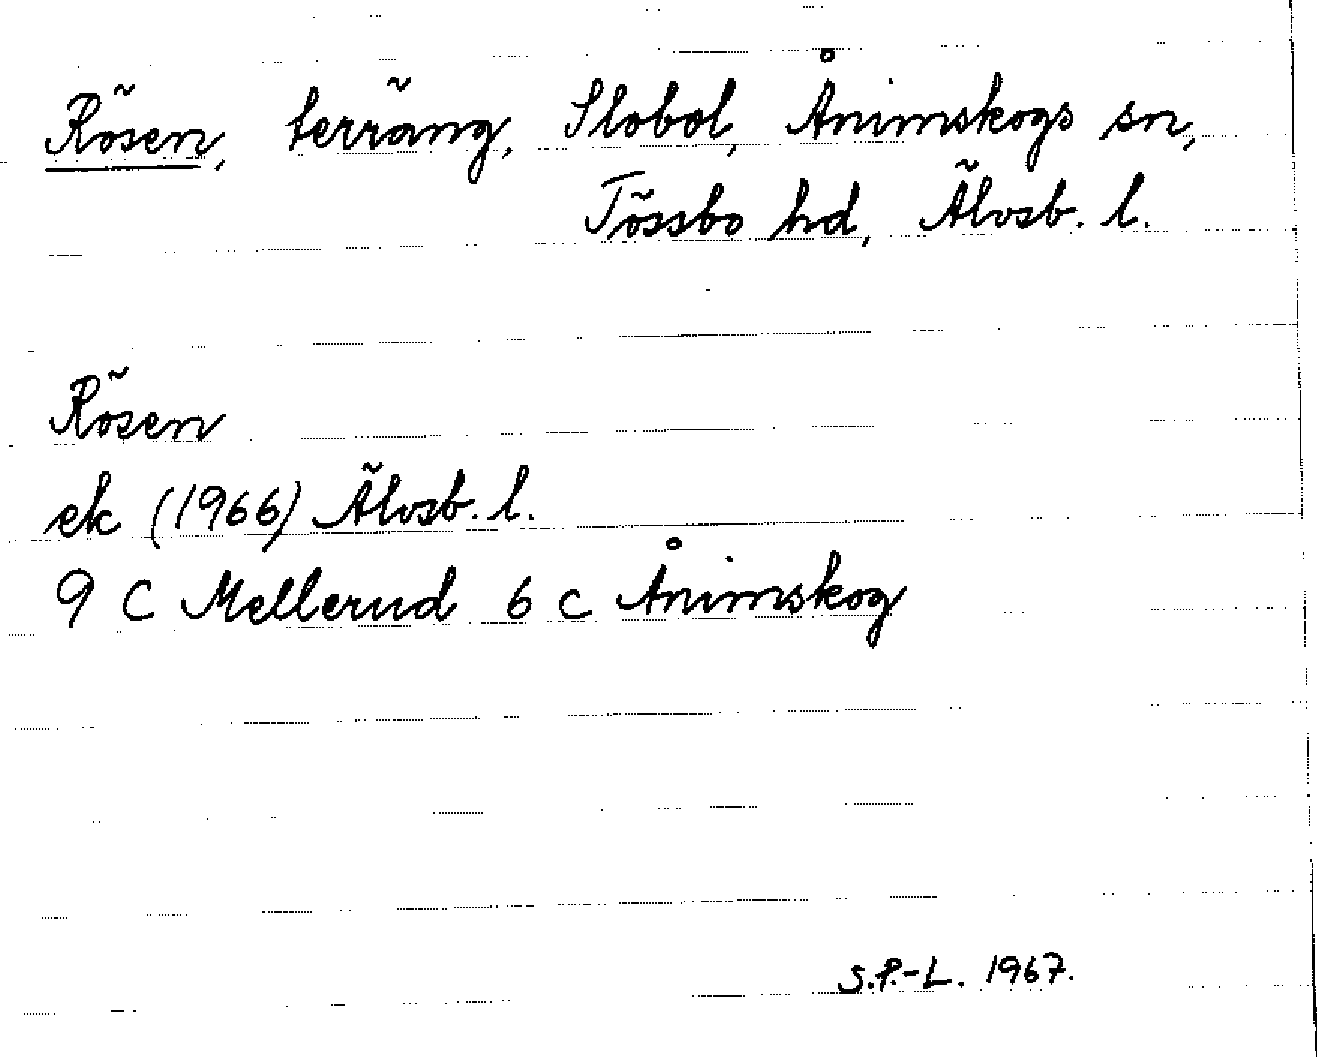 Rösen, terräng, Slobol, Ånimskogs sn,
Tössbo hd, Älvsb. l.
Rösen
ek (1966) Älvsb. l.
9 C Mellerud 6 c Ånimskog
S.P.-L. 1967.